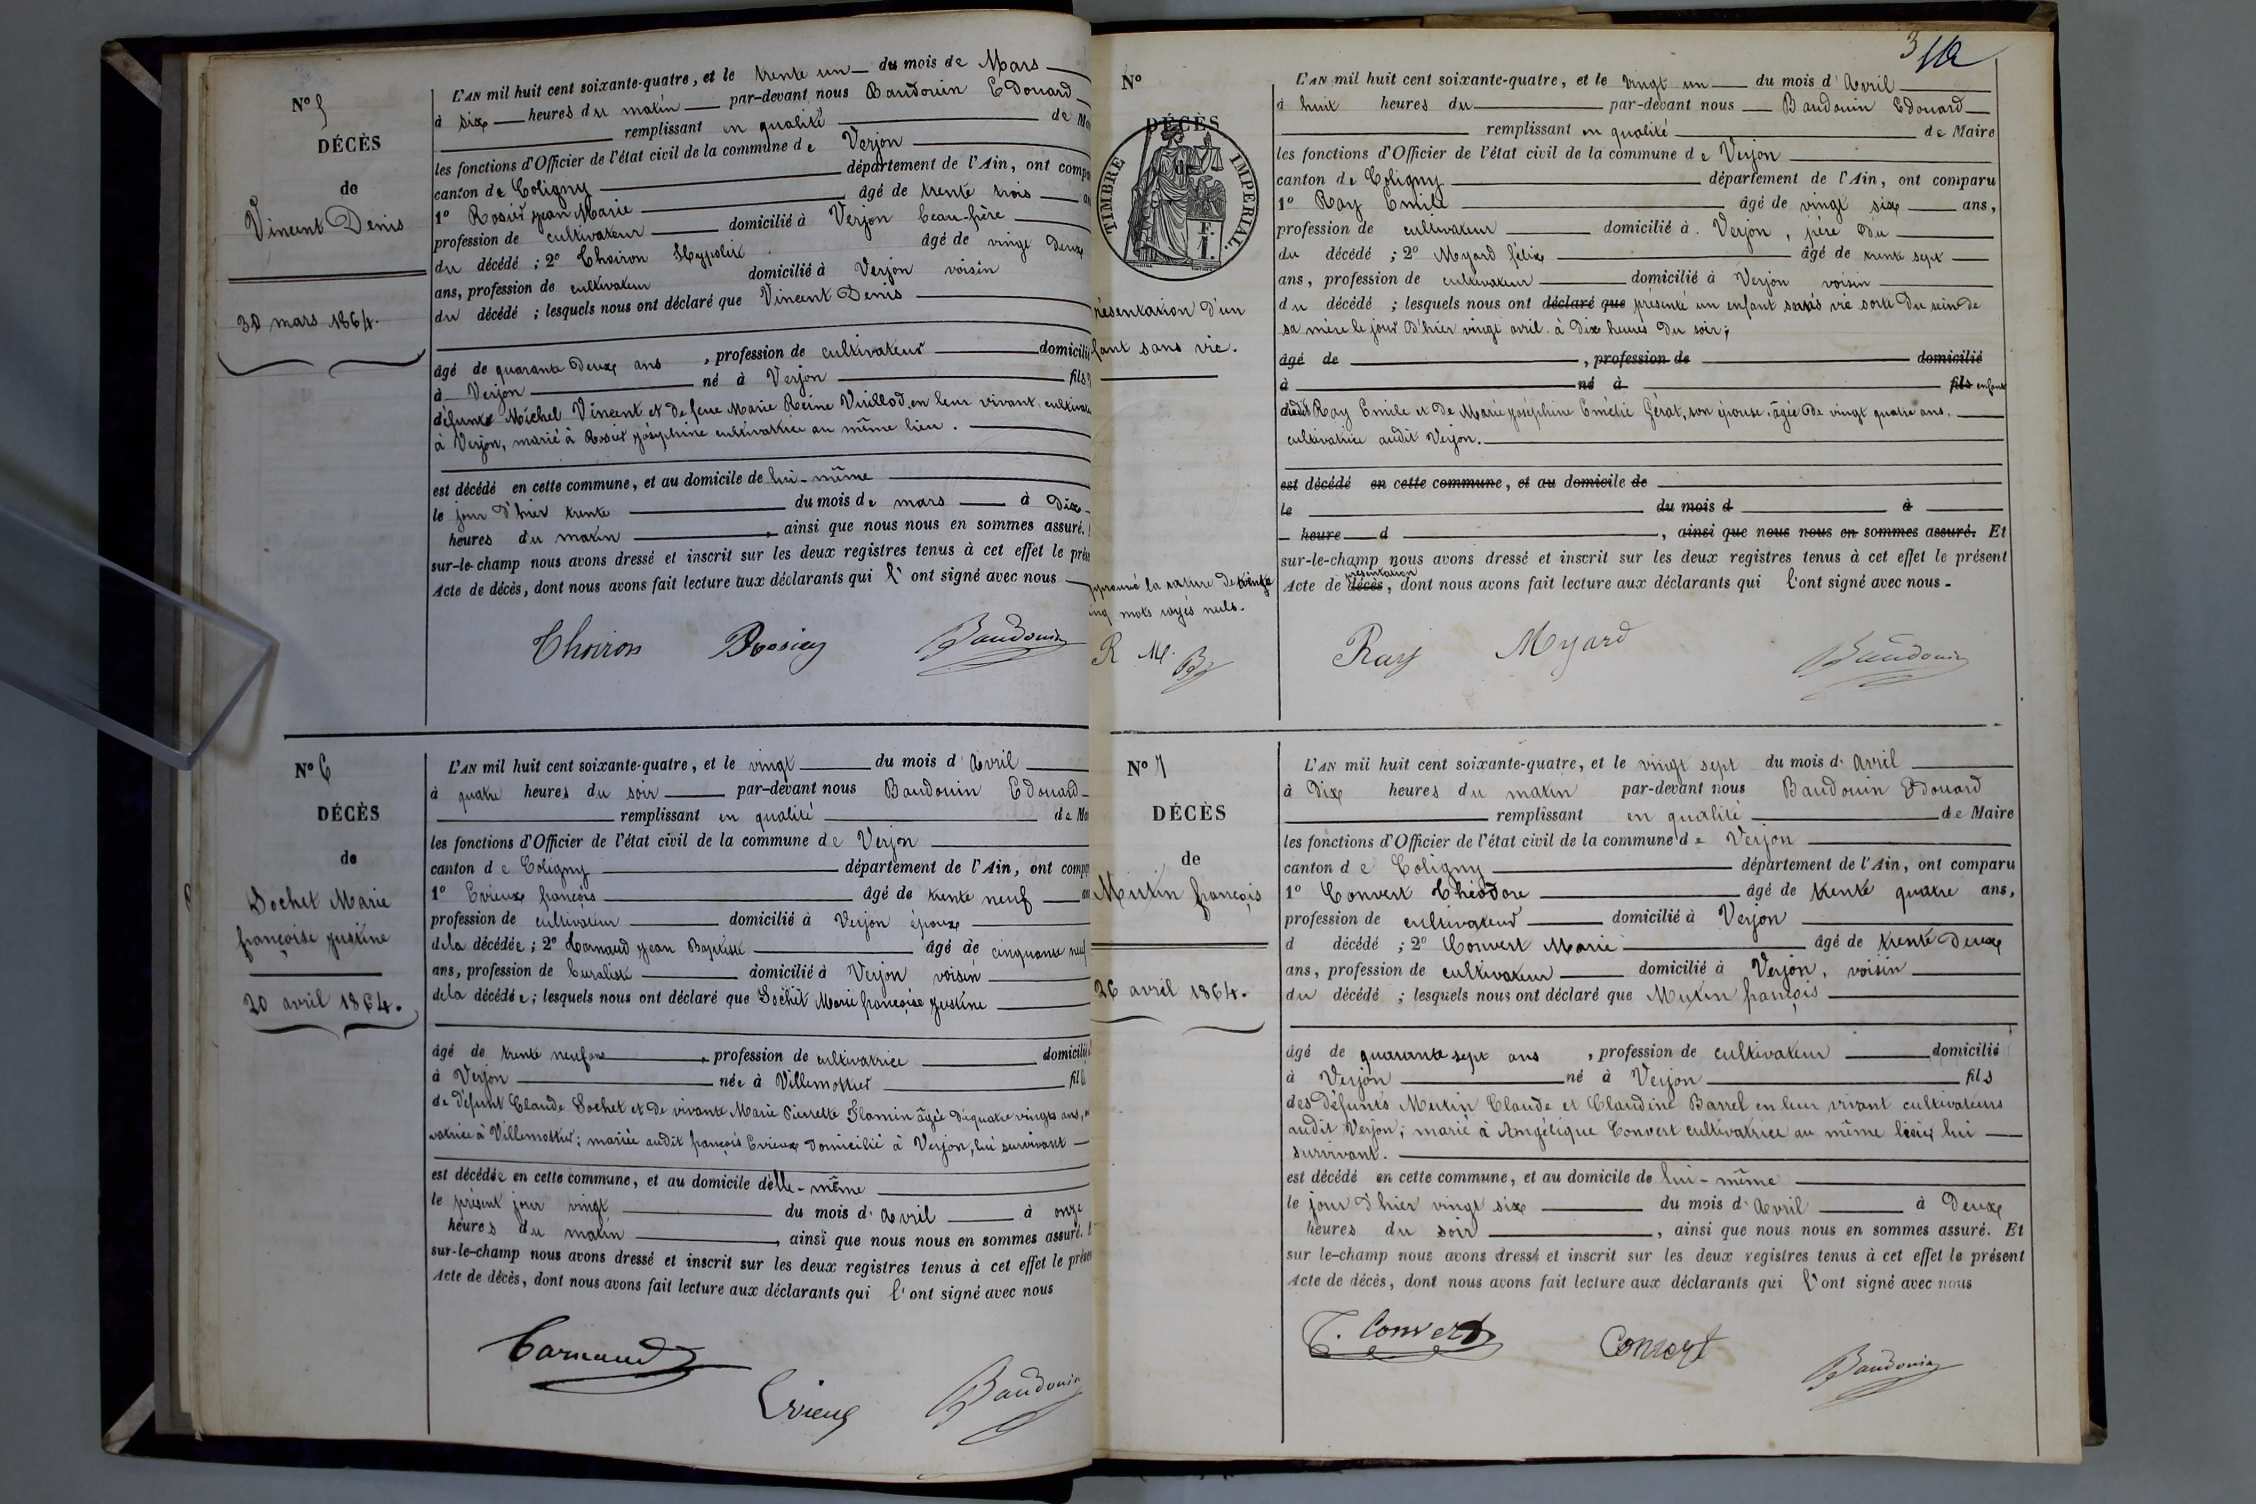 N° 5
DÉCÈS
de
Vincent Denis
30 mars 1864.
L'AN mil huit cent soixante-quatre, et le trente un du mois de Mars
à six heures du matin par-devant nous Baudouin Edouard
remplissant en qualité de
les fonctions d'Officier de l'état civil de la commune de Verjon
canton de Coligny département de l'Ain, ont
1° Rosier jean Marie âgé de trente trois
profession de cultivateur domicilié à Verjon beau-frère
du décédé ; 2° Thoiron Hypolite âgé de vingt deux
ans, profession de cultivateur domicilié à Verjon voisin
du décédé ; lesquels nous ont déclaré que Vincent Denis
âgé de quarante deux ans , profession de cultivateur
à Verjon né à Verjon fils
défunts Michel Vincent et de feue Marie Reine Vuillod, en leur vivant
à Verjon, marié à Rosier joséphine cultivatrice au même lieu .
est décédé en cette commune, et au domicile de lui-même
le jour d'hier trente du mois de mars à Dix
heures du matin , ainsi que nous nous en sommes assuré.
sur-le-champ nous avons dressé et inscrit sur les deux registres tenus à cet effet le
Acte de décès, dont nous avons fait lecture aux déclarants qui l'ont signé avec nous
Thoiron Rosier Baudouin
N° 6
DÉCÈS
de
Sochet Marie
françoise justine
20 avril 1864.
L'AN mil huit cent soixante-quatre, et le vingt du mois d'Avril
à quatre heures du soir par-devant nous Baudouin Edouard
remplissant en qualité de
les fonctions d'Officier de l'état civil de la commune de Verjon
canton de Coligny département de l'Ain, ont
1° Evieux françois âgé de trente neuf
profession de cultivateur domicilié à Verjon époux
dela décédée ; 2° Carnaud jean Baptiste âgé de cinquante neuf
ans, profession de buraliste domicilié à Verjon voisin
dela décédée ; lesquels nous ont déclaré que Sochet Marie françoise justine
âgé de trente neuf ans , profession de cultivatrice
à Verjon née à Villemotier
de défunt Claude Sochet et de vivante Marie Pierrette Flamin âgée de quatre vingts ans,
à Villemotier; mariée audit françois Evieux domicilié à Verjon, lui survivant
est décédée en cette commune, et au domicile d'elle-même
le présent jour vingt du mois d'Avril à onze
heures du matin , ainsi que nous nous en sommes assuré.
sur-le-champ nous avons dressé et inscrit sur les deux registres tenus à cet effet le
Acte de décès, dont nous avons fait lecture aux déclarants qui l'ont signé avec nous
Carnaud
Evieux Baudouin
N°
DÉCÈS
de
TIMBRE IMPÉRIAL
1 F.
résentation d'un
fant sans vie.
la rature de vingt
mots rayés nuls.
R M. B
L'AN mil huit cent soixante-quatre, et le vingt un du mois d'Avril
à huit heures du par-devant nous Baudouin Edouard
remplissant en qualité de Maire
les fonctions d'Officier de l'état civil de la commune de Verjon
canton de Coligny département de l'Ain, ont comparu
1° Ray Emile âgé de vingt six ans,
profession de cultivateur domicilié à Verjon, père du
du décédé ; 2° Myard félix âgé de trente sept
ans, profession de cultivateur domicilié à Verjon voisin
du décédé ; lesquels nous ont déclaré que présenté un enfant sans vie sorti du sein de
sa mère le jour d'hier vingt avril à dix heures du soir;
âgé de , profession de domicilié
à né à fils enfant
dudit Ray Emile et de Marie joséphine Emélie Gérat, son épouse, âgée de vingt quatre ans,
cultivatrice audit Verjon.
est décédé en cette commune, et au domicile de
le du mois d à
heure d , ainsi que nous nous en sommes assuré. Et
sur-le-champ nous avons dressé et inscrit sur les deux registres tenus à cet effet le présent
présentation
Acte de décès, dont nous avons fait lecture aux déclarants qui l'ont signé avec nous
Ray Myard Baudouin
N° 7
DÉCÈS
de
Mutin françois
26 avril 1864.
L'AN mil huit cent soixante-quatre, et le vingt sept du mois d'Avril
à Dix heures du matin par-devant nous Baudouin Edouard
remplissant en qualité de Maire
les fonctions d'Officier de l'état civil de la commune de Verjon
canton de Coligny département de l'Ain, ont comparu
1° Convert Théodore âgé de trente quatre ans,
profession de cultivateur domicilié à Verjon
d décédé ; 2° Convert Marie âgé de trente deux
ans, profession de cultivateur domicilié à Verjon, voisin
du décédé ; lesquels nous ont déclaré que Mutin françois
âgé de quarante sept ans , profession de cultivateur domicilié
à Verjon né à Verjon fils
des défunts Mutin Claude et Claudine Barrel en leur vivant cultivateurs
audit Verjon; marié à Angélique Convert cultivatrice au même lieu, lui
survivant.
est décédé en cette commune, et au domicile de lui-même
le jour d'hier vingt six du mois d'Avril à Deux
heures du soir , ainsi que nous nous en sommes assuré. Et
sur-le-champ nous avons dressé et inscrit sur les deux registres tenus à cet effet le présent
Acte de décès, dont nous avons fait lecture aux déclarants qui l'ont signé avec nous
T. Convert Convert Baudouin